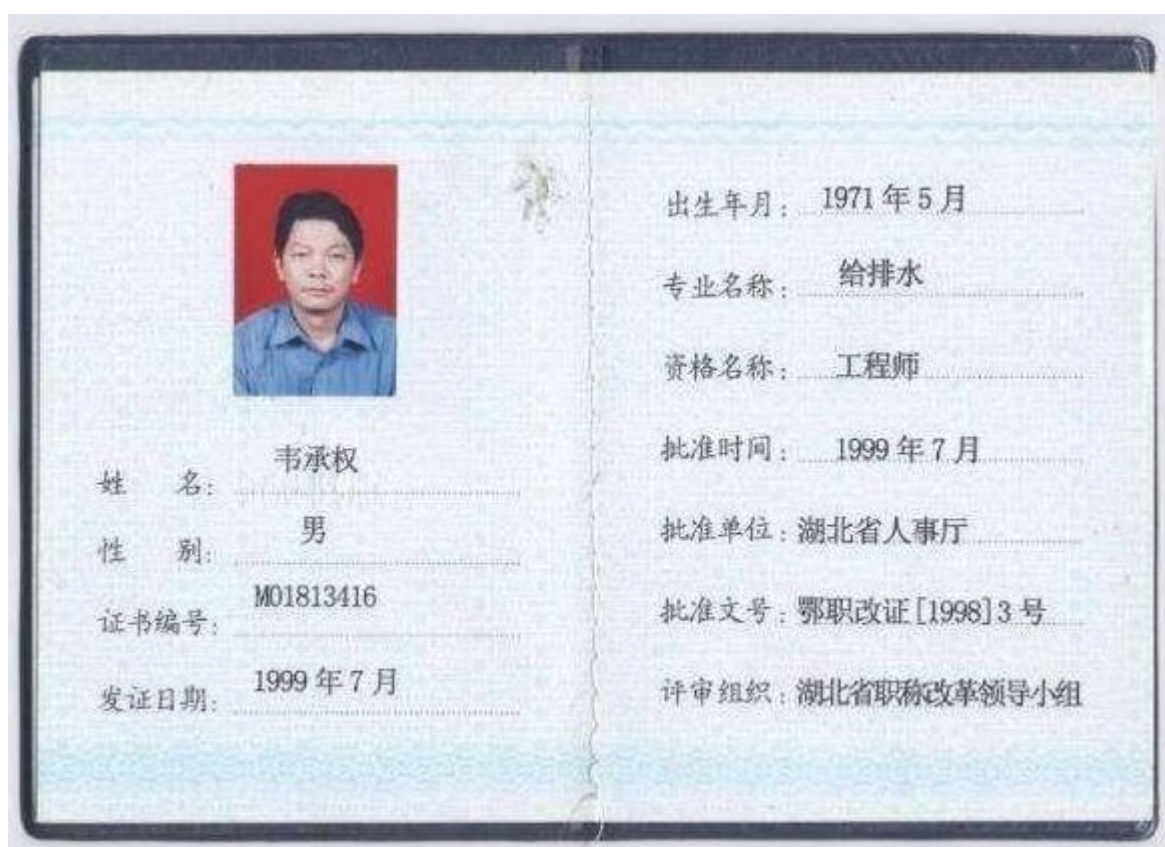 姓 名: 韦承权
性 别: 男
证书编号: M01813416
发证日期: 1999年7月
出生年月: 1971年5月
专业名称: 给排水
资格名称: 工程师
批准时间: 1999年7月
批准单位: 湖北省人事厅
批准文号: 鄂职改证[1998]3号
评审组织: 湖北省职称改革领导小组